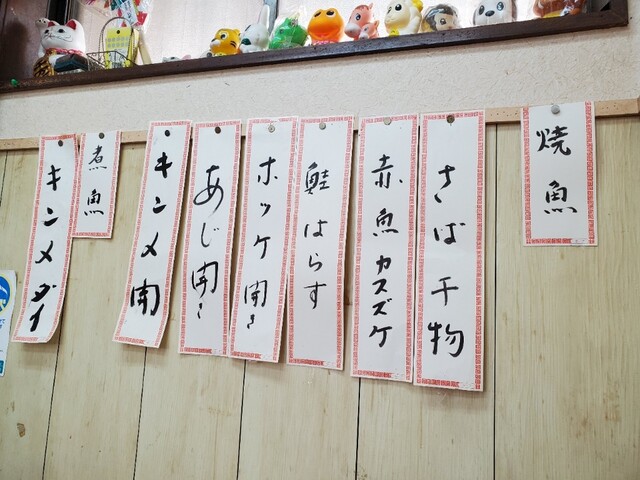 焼魚
さば干物
赤魚カスズケ
鮭はらす
ホッケ開き
あじ開き
キンメ開
煮魚
キンメダイ